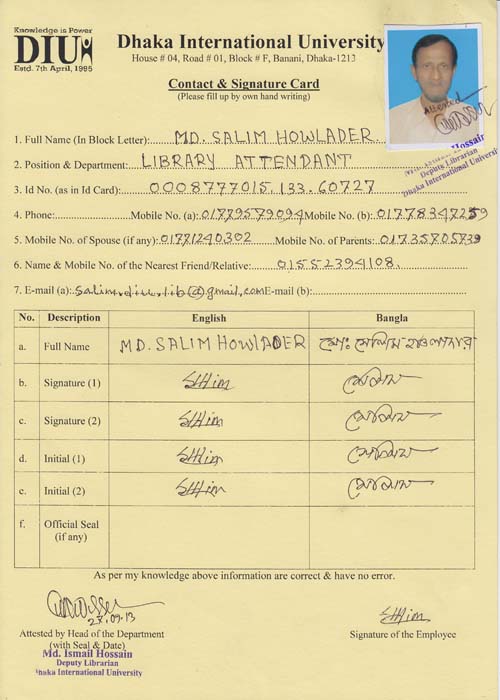 Knowledge is Power
DIU
Estd. 7th April, 1995
Dhaka International University
House # 04, Road # 01, Block # F, Banani, Dhaka-1213
Contact & Signature Card
(Please fill up by own hand writing)
Attested
Hossain
Deputy Librarian
Dhaka International University
1. Full Name (In Block Letter): MD. SALIM HOWLADER
2. Position & Department: LIBRARY ATTENDANT
3. Id No. (as in Id Card): 0008777015.133.60727
4. Phone: Mobile No. (a): 01779579094 Mobile No. (b): 01778347259
5. Mobile No. of Spouse (if any): 01771240302 Mobile No. of Parents: 01735705739
6. Name & Mobile No. of the Nearest Friend/Relative: 01552394108.
7. E-mail (a): salim.diu.lib@gmail.com E-mail (b):
No. Description English Bangla
a. Full Name MD. SALIM HOWLADER মোঃ সেলিম হাওলাদার
b. Signature (1) সেলিম
c. Signature (2) সেলিম
d. Initial (1) সেলিম
e. Initial (2) সেলিম
f. Official Seal (if any)
As per my knowledge above information are correct & have no error.
27.09.13
Attested by Head of the Department Signature of the Employee
(with Seal & Date)
Md. Ismail Hossain
Deputy Librarian
Dhaka International University